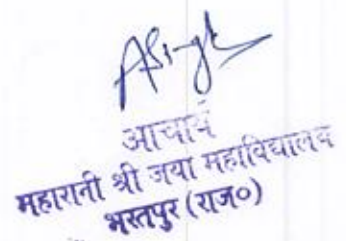 ASingh
आचार्य
महारानी श्री जया महाविद्यालय
भरतपुर (राज०)